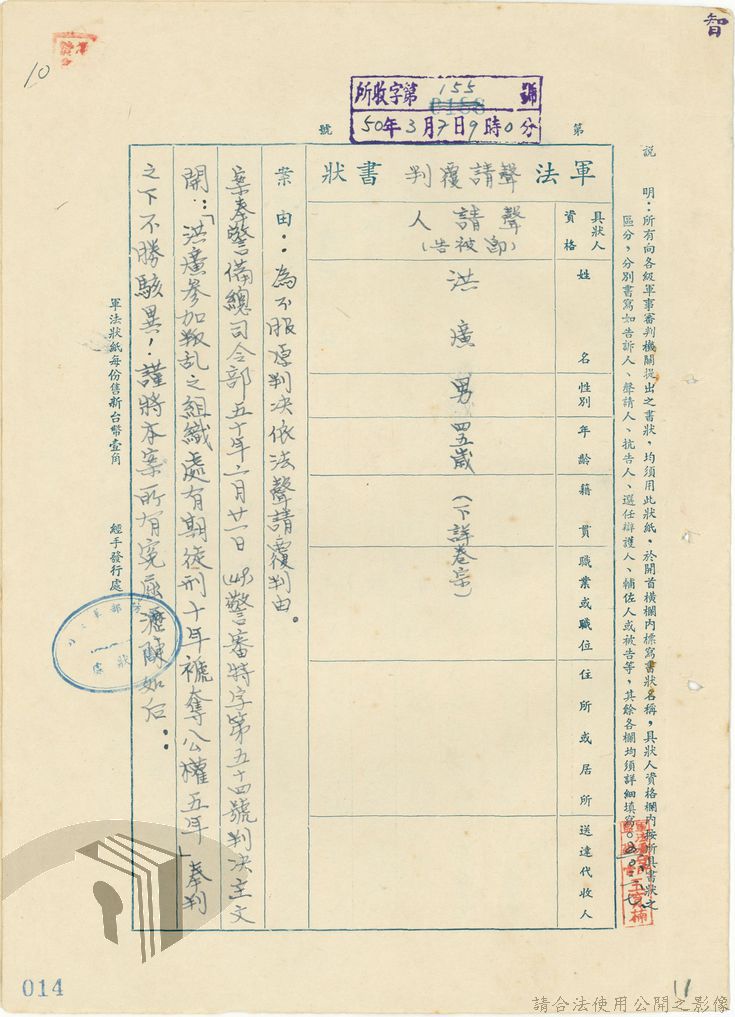 智
10
所收字第155號
50年3月7日9時0分
第
號
說明：所有向各級軍事審判機關提出之書狀，均須用此狀紙，於開首橫欄內標寫書狀名稱，具狀人資格欄內按所具書狀之
區分，分別書寫如告訴人、聲請人、抗告人、選任辯護人、輔佐人或被告等，其餘各欄均須詳細填寫。
軍法聲請覆判書狀
具狀人資格
聲請人
（即被告）
姓名
洪廣
性別
男
年齡
四五歲
籍貫
（下詳卷宗）
職業或職位
住所或居所
送達代收人
案由：為不服原判決依法聲請覆判由。
案奉警備總司令部五十年二月廿一日(49)警審特字第五十四號判決主文
開：「洪廣參加叛乱之組織處有期徒刑十年褫奪公權五年」奉判
之下不勝駭異，謹將本案所有冤屈瀝陳如后：
軍法狀紙每份售新台幣壹角
經手發行處
014
11
請合法使用公開之影像